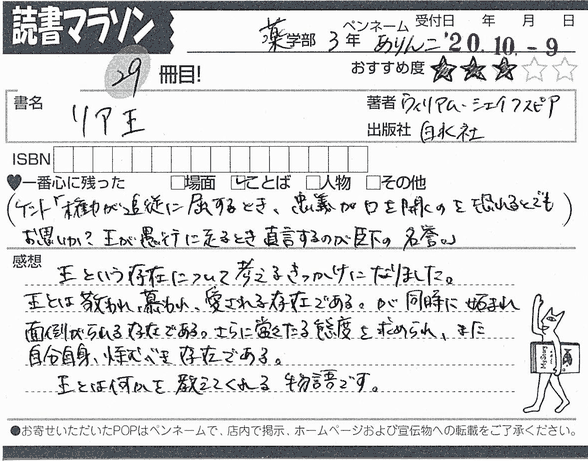 読書マラソン
薬学部 3年 ペンネーム ありんこ 受付日 年 月 日 '20.10.-9
29 冊目! おすすめ度 ★★★☆☆
書名 リア王
著者 ウィリアム・シェイクスピア
出版社 白水社
ISBN
♥一番心に残った □場面 ☑ことば □人物 □その他
(ケント「権力が追従に屈するとき、忠義が口を開くのを恐れるとでも
お思いか?王が愚行に走るとき直言するのが臣下の名誉。」)
感想
王という存在について考えるきっかけになりました。
王とは敬われ、慕われ、愛される存在である。が同時に妬まれ
面倒がられる存在である。さらに堂々たる態度を求められ、また
自分自身、悩むべき存在である。
王とは何かを教えてくれる物語です。
●お寄せいただいたPOPはペンネームで、店内で掲示、ホームページおよび宣伝物への転載をご了承ください。